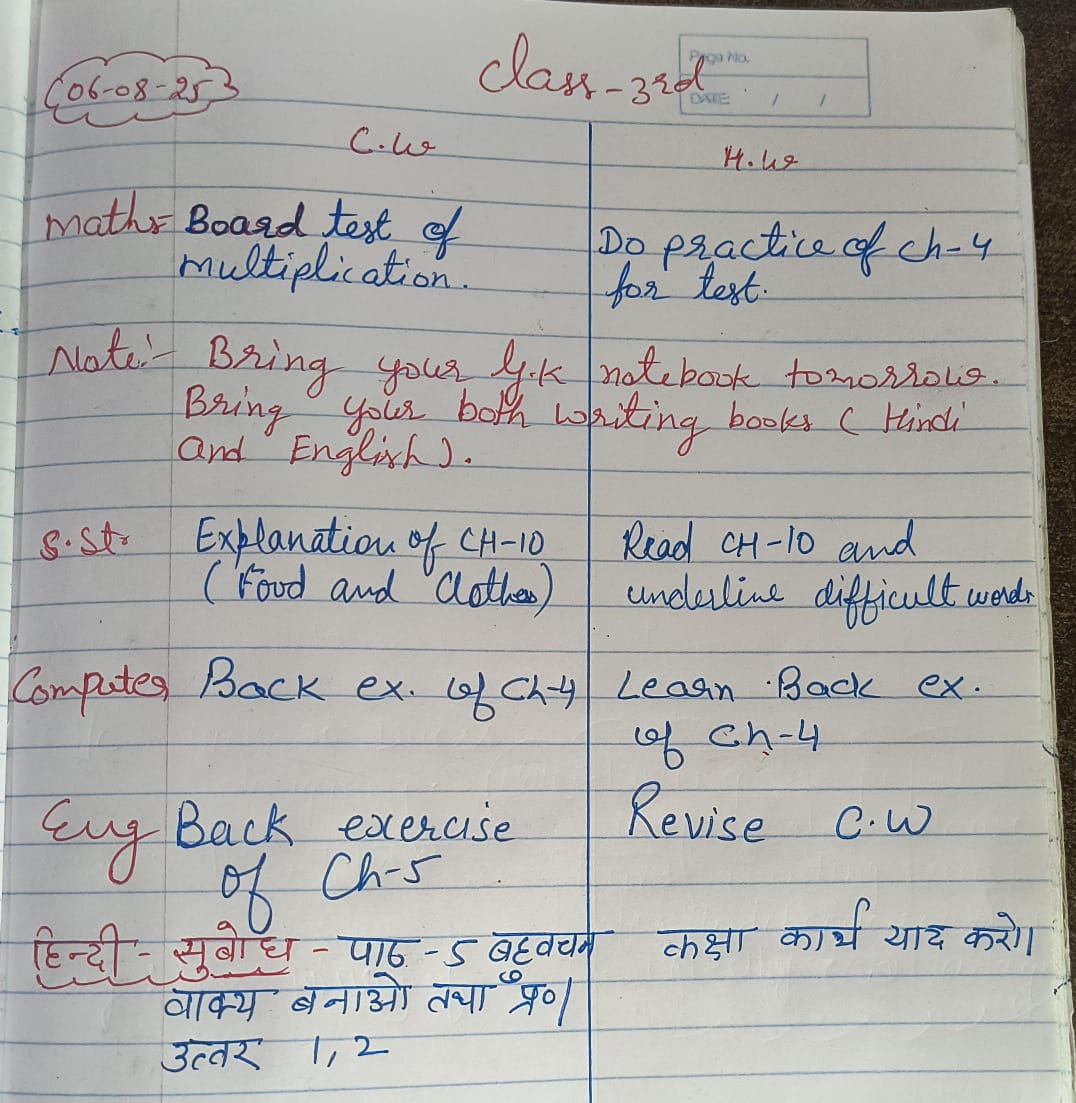 06-08-25
Class-3rd
Page No.
DATE / /
C.W
H.W
Maths- Board test of
multiplication.
Do practice of ch-4
for test.
Note:- Bring your G.K notebook tomorrow.
Bring your both writing books ( Hindi
and English).
S.St. Explanation of CH-10
(Food and Clothes)
Read CH-10 and
underline difficult words
Computer Back ex. of Ch-4
Learn Back ex.
of Ch-4
Eng Back exercise
of Ch-5
Revise C.W
हिन्दी - सुबोध - पाठ -5 बहुवचन
वाक्य बनाओ तथा प्र०/
उत्तर 1,2
कक्षा कार्य याद करो।